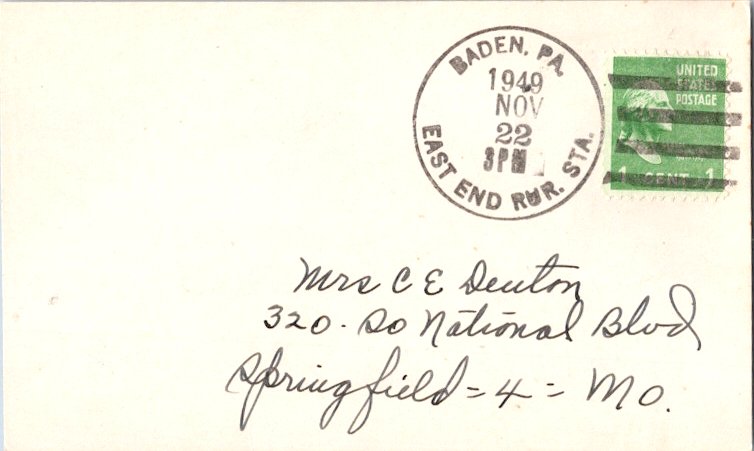 BADEN, PA.
1949
NOV
22
3PM
EAST END RUR. STA.
UNITED
STATES
POSTAGE
1 CENT 1
Mrs C E Denton
320 - So National Blvd
Springfield = 4 = Mo.